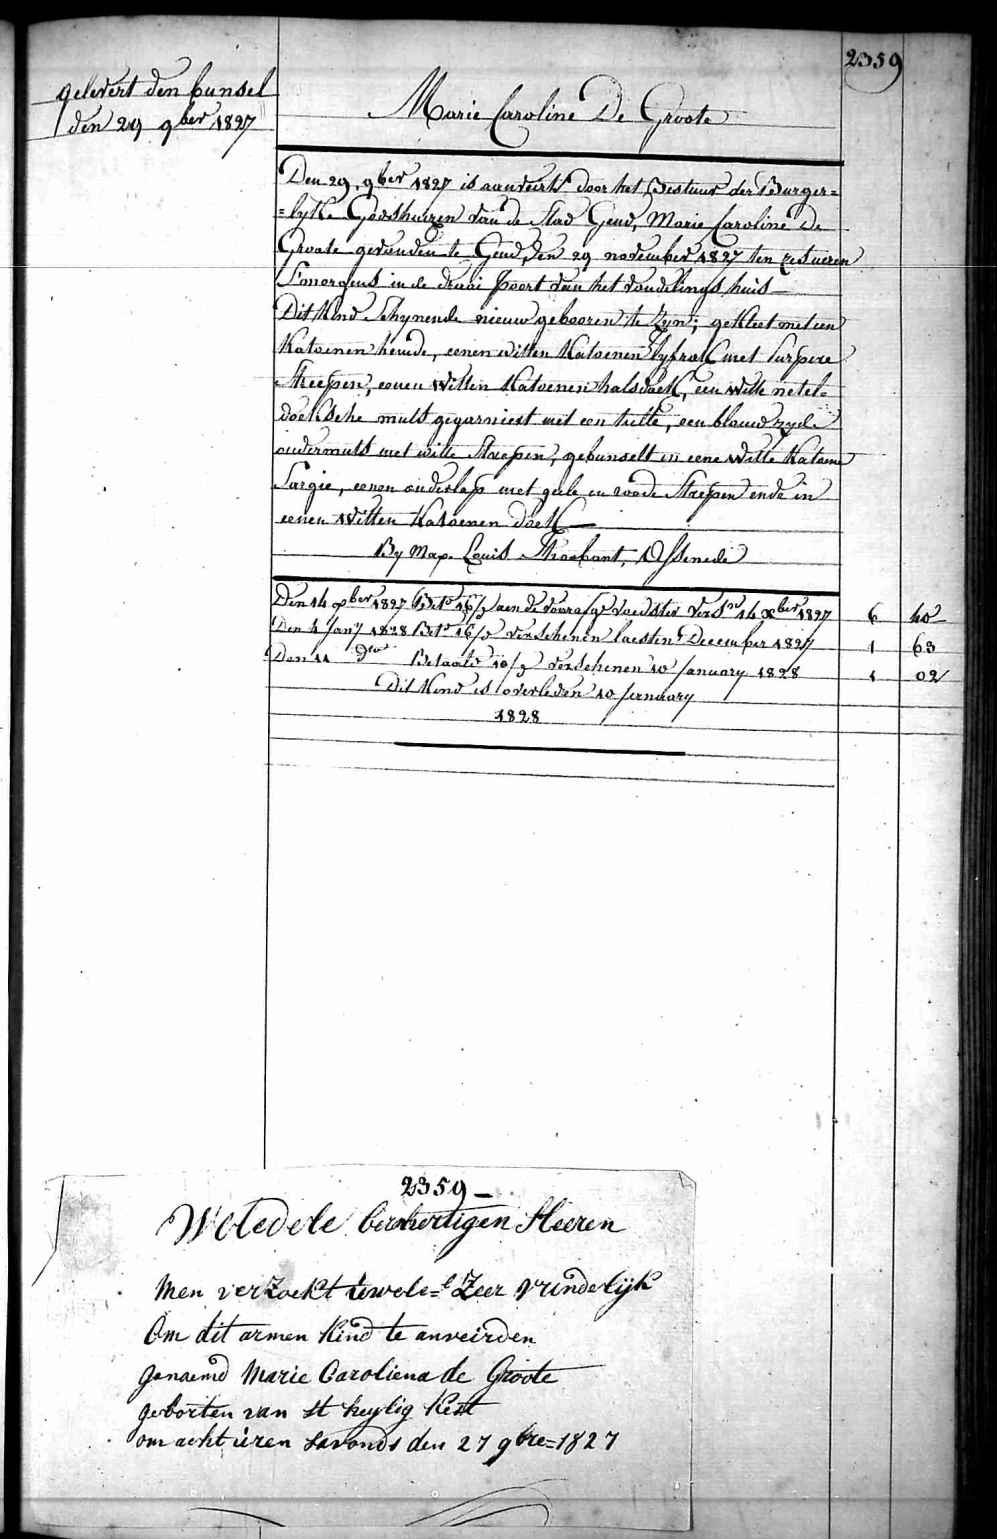 2359
gelevert den bunsel
den 29 9ber 1827
Marie Caroline De Groote
Den 29, 9ber 1827 is aanveirt door het Bestuur der Burger=
=lyke Godshuizen van de Stad Gend, Marie Caroline De
Groote gevonden te Gend, den 29 november 1827 ten zes ueren
S'morgens in de draai poort van het vondelings huis
Dit Kind Schynende nieuw gebooren te Zyn; gekleet met een
Katoenen hemde, eenen witten Katoenen lyfrok met purpere
Streepen, eenen Witten Katoenen halsdoek, een witte netel=
doeksche muts gegarniert met een tulle, een blauw zyde
ondermuts met witte Streepen, gebunselt in eene Witte Katoene
Sargie, eenen onderlap met geele en roode Streepen ende in
eenen Witten Katoenen doek
By Max. Louis Strobant, Assenede
Den 14 xber 1827 Bet. 16/ aen de voorsz. voedster vers. 14 xber 1827 6 40
Den 4 Jany 1828 Bet. 16/ verschenen laesten December 1827 1 63
Den 11 dto Betaald 10/ verschenen 10 January 1828 1 02
Dit Kind is overleden 10 January
1828
2359
WelEdele bermhertigen Heeren
Men verzoekt uwele=s Zeer vrindelijk
Om dit armen Kind te anveirden
genaemd Marie Caroliena de Groote
geborten van st heylig Kest
om acht uren savonds den 27 9bre=1827